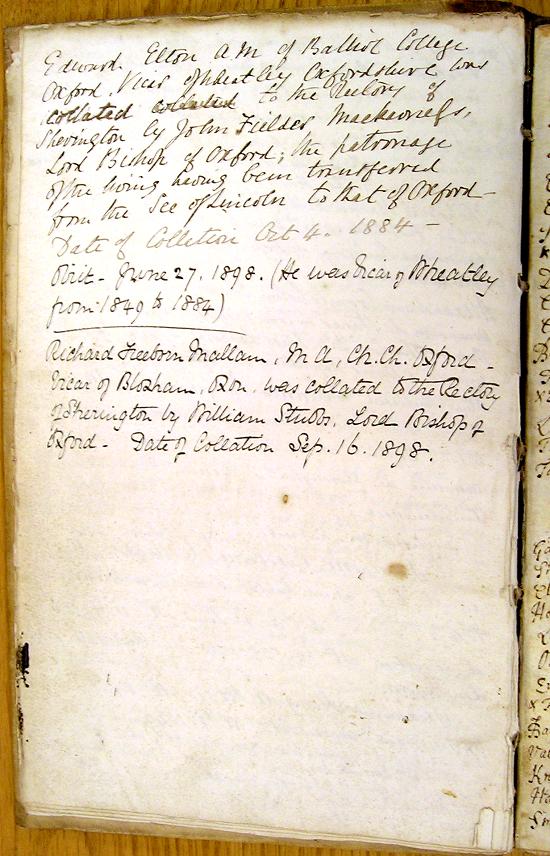 Edward Elton A M of Balliol College
Oxford. Vicar of Wheatley Oxfordshire was
collated collated to the Rectory of
Sherington by John Fielder Mackarness,
Lord Bishop of Oxford; the patronage
of the living having been transferred
from the See of Lincoln to that of Oxford -
Date of Colletion Oct 4. 1884 -
Obiit - June 27. 1898. (He was Vicar of Wheatley
from 1849 to 1884)
Richard Freeborn Mallam, M A, Ch. Ch. Oxford -
Vicar of Bloxham, Oxon. was collated to the Rectory
of Sherington by William Stubbs, Lord Bishop of
Oxford - Date of Collation Sep. 16. 1898.